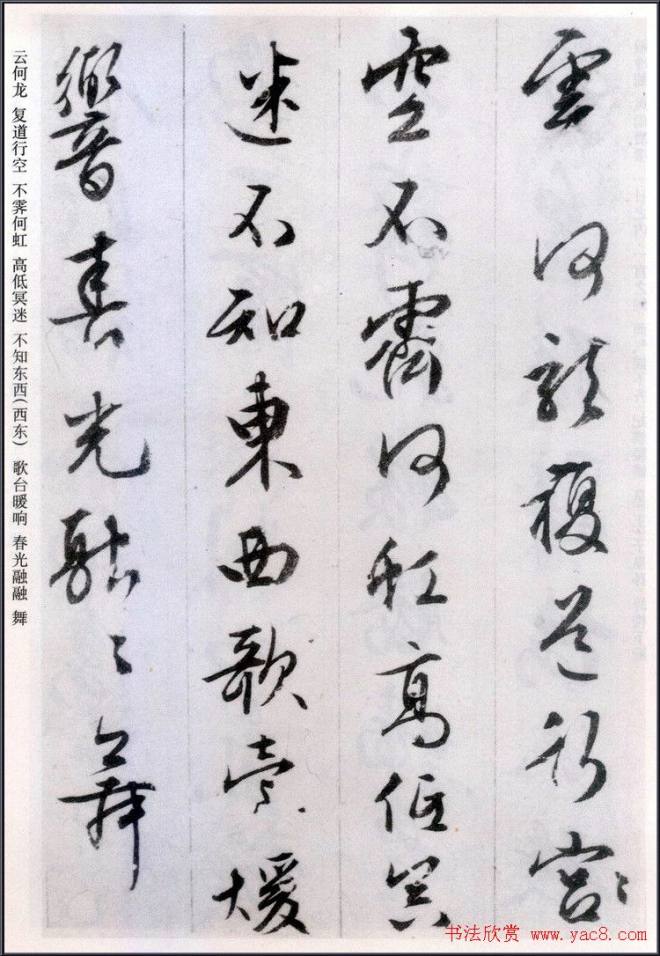 雲何龍複道行宮
空不霽何虹高低冥
迷不知東西歌臺暖
響春光融々舞
云何龙 复道行空 不霁何虹 高低冥迷 不知东西(西东) 歌台暖响 春光融融 舞
书法欣赏 www.yac8.com